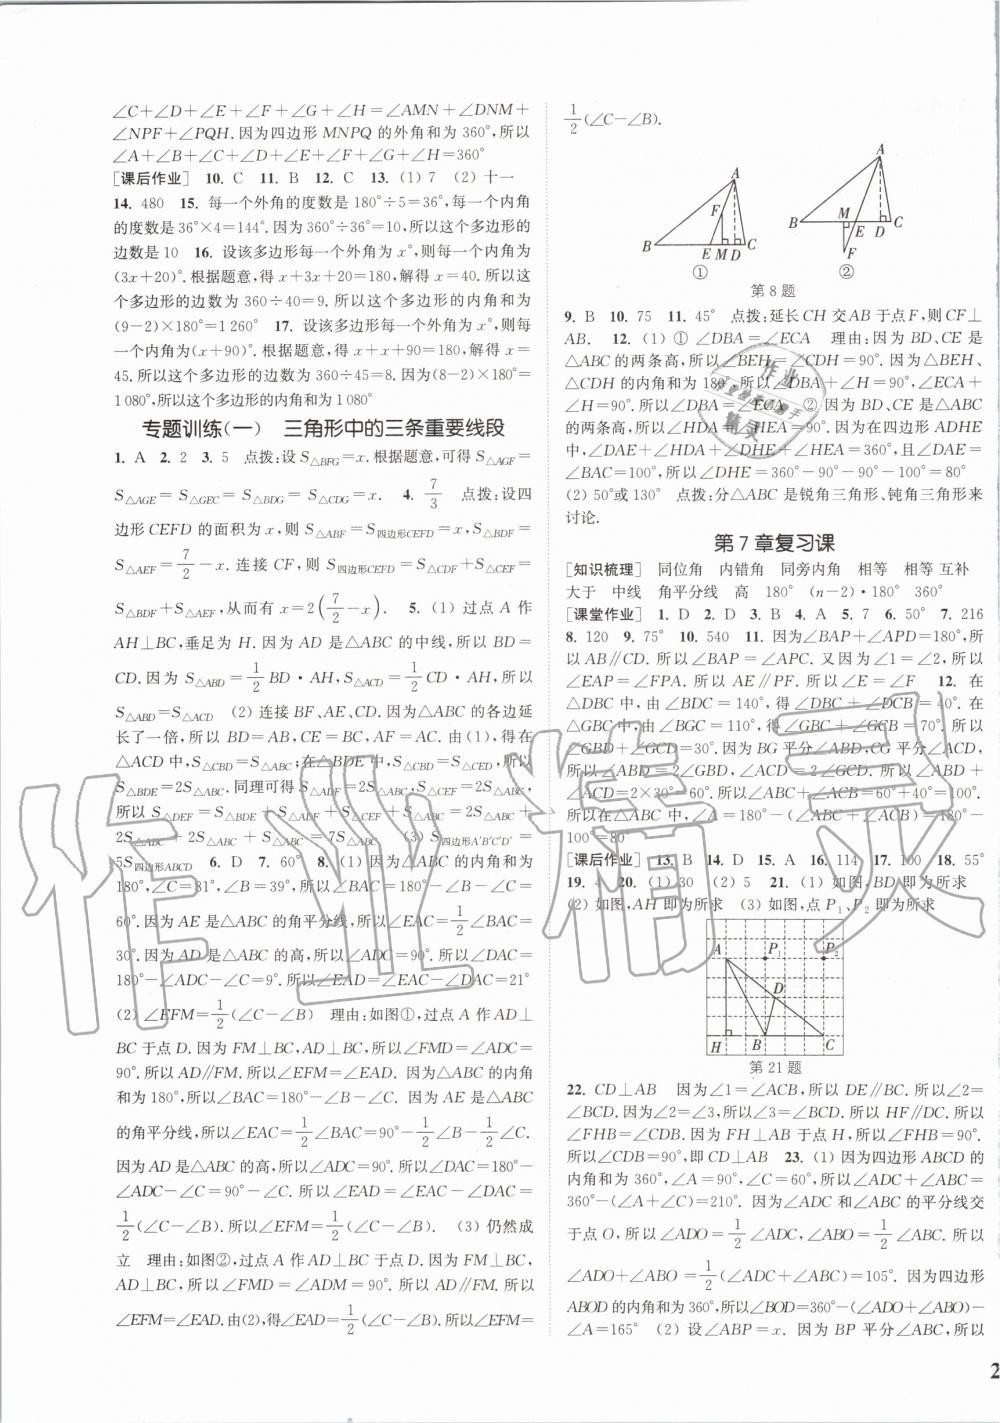 ∠C+∠D+∠E+∠F+∠G+∠H=∠AMN+∠DNM+
∠NPF+∠PQH.因为四边形 MNPQ 的外角和为 360°,所以
∠A+∠B+∠C+∠D+∠E+∠F+∠G+∠H=360°
[课后作业] 10. C 11. B 12. C 13. (1) 7 (2) 十一
14. 480 15. 每一个外角的度数是 180°÷5=36°,每一个内角
的度数是 36°×4=144°.因为 360°÷36°=10,所以这个多边形的
边数为 10 16. 设该多边形每一个外角为 x°,则每一个内角为
(3x+20)°.根据题意,得 x+3x+20=180,解得 x=40.所以这
个多边形的边数为 360÷40=9.所以这个多边形的内角和为
(9-2)×180°=1 260° 17. 设该多边形每一个外角为 x°,则每
一个内角为(x+90)°.根据题意,得 x+x+90=180,解得 x=
45.所以这个多边形的边数为 360÷45=8.因为(8-2)×180°=
1 080°,所以这个多边形的内角和为 1 080°
专题训练(一) 三角形中的三条重要线段
1. A 2. 2 3. 5 点拨:设 S△BFG=x.根据题意,可得 S△AGF=
S△AGE=S△GEC=S△BDG=S△CDG=x. 4. 7/3 点拨:设四
边形 CEFD 的面积为 x,则 S△ABF=S四边形CEFD=x,所以
S△AEF=7/2-x. 连接 CF. 因为 S四边形CEFD=S△CDF+S△CEF=
S△BDF+S△AEF,从而有 x=2(7/2-x). 5. (1) 过点 A 作
AH⊥BC,垂足为 H. 因为 AD 是△ABC 的中线,所以 BD=
CD.因为 S△ABD=1/2BD·AH,S△ACD=1/2CD·AH,所以
S△ABD=S△ACD (2) 连接 BF、AE、CD.因为△ABC 的各边延
长了一倍,所以 BD=AB,CE=BC,AF=AC.由(1),得在
△ACD 中,S△CBD=S△ABC;在△BDE 中,S△CBD=S△CED.所以
S△BDE=2S△ABC.同理可得 S△ADF=2S△ABC,S△CEF=2S△ABC.
所以 S△DEF=S△BDE+S△ADF+S△CEF+S△ABC=2S△ABC+
2S△ABC+2S△ABC+S△ABC=7S△ABC (3) S四边形A'B'C'D'=
5S四边形ABCD 6. D 7. 60° 8. (1) 因为△ABC 的内角和为
180°,∠C=81°,∠B=39°,所以∠BAC=180°-∠B-∠C=
60°.因为 AE 是△ABC 的角平分线,所以∠EAC=1/2∠BAC=
30°.因为 AD 是△ABC 的高,所以∠ADC=90°.所以∠DAC=
180°-∠ADC-∠C=9°.所以∠EAD=∠EAC-∠DAC=21°
(2) ∠EFM=1/2(∠C-∠B) 理由:如图①,过点 A 作 AD⊥
BC 于点 D.因为 FM⊥BC,所以∠FMD=∠ADC=90°.所
以 AD∥FM.所以∠EFM=∠EAD.因为△ABC 的内角
和为 180°,所以∠BAC=180°-∠B-∠C.因为 AE 是△ABC
的角平分线,所以∠EAC=1/2∠BAC=90°-1/2∠B-1/2∠C.
因为 AD 是△ABC 的高,所以∠ADC=90°.所以∠DAC=180°-
∠ADC-∠C=90°-∠C.所以∠EAD=∠EAC-∠DAC=
1/2(∠C-∠B).所以∠EFM=1/2(∠C-∠B). (3) 仍然成
立 理由:如图②,过点 A 作 AD⊥BC 于点 D.因为 FM⊥BC,
AD⊥BC,所以∠FMD=∠ADM=90°.所以 AD∥FM.所以
∠EFM=∠EAD.由(2),得∠EAD=1/2(∠C-∠B).所以∠EFM=
1/2(∠C-∠B).
A
F
B
E M D C
①
A
B
M
E D C
F
②
第 8 题
9. B 10. 75 11. 45° 点拨:延长 CH 交 AB 于点 F,则 CF⊥
AB. 12. (1) ① ∠DBA=∠ECA 理由:因为 BD、CE 是
△ABC 的两条高,所以∠BEH=∠CDH=90°.因为△BEH、
△CDH 的内角和为 180°,所以∠DBA=180°-90°-∠BHE,
所以∠DBA=∠ECA ② 因为 BD、CE 是△ABC
的两条高,所以∠HDA=∠HEA=90°.因为在四边形 ADHE
中,∠DAE+∠HDA+∠DHE+∠HEA=360°,且∠DAE=
∠BAC=100°,所以∠DHE=360°-90°-90°-100°=80°
(2) 50°或 130° 点拨:分△ABC 是锐角三角形、钝角三角形来
讨论.
第 7 章复习课
[知识梳理] 同位角 内错角 同旁内角 相等 相等 互补
大于 中线 角平分线 高 180° (n-2)·180° 360°
[课堂作业] 1. D 2. D 3. B 4. A 5. 7 6. 50° 7. 216
8. 120 9. 75° 10. 540 11. 因为∠BAP+∠APD=180°,所
以 AB∥CD.所以∠BAP=∠APC.又因为∠1=∠2,所以
∠EAP=∠FPA.所以 AE∥PF.所以∠E=∠F 12. 在
△DBC 中,由∠BDC=140°,得∠DBC+∠DCB=40°.在
△GBC 中,由∠BGC=110°,得∠GBC+∠GCB=70°.所以
∠GBD+∠GCD=30°.因为 BG 平分∠ABD,CG 平分∠ACD,
所以∠ABD=2∠GBD,∠ACD=2∠GCD.所以∠ABD+
∠ACD=2×30°=60°.所以∠ABC+∠ACB=60°+40°=100°.
所以在△ABC 中,∠A=180°-(∠ABC+∠ACB)=180°-
100°=80°
[课后作业] 13. B 14. D 15. A 16. 114 17. 100 18. 55°
19. 4 20. (1) 30 (2) 5 21. (1) 如图,BD 即为所求
(2) 如图,AH 即为所求 (3) 如图,点 P1、P2 即为所求
A P1 P2
D
H B C
第 21 题
22. CD⊥AB 因为∠1=∠ACB,所以 DE∥BC.所以∠2=
∠BCD.因为∠2=∠3,所以∠3=∠BCD.所以 HF∥DC.所以
∠FHB=∠CDB.因为 FH⊥AB 于点 H,所以∠FHB=90°.
所以∠CDB=90°,即 CD⊥AB 23. (1) 因为四边形 ABCD 的
内角和为 360°,∠A=90°,∠C=60°,所以∠ADC+∠ABC=
360°-(∠A+∠C)=210°.因为∠ADC 和∠ABC 的平分线交
于点 O,所以∠ADO=1/2∠ADC,∠ABO=1/2∠ABC.所以
∠ADO+∠ABO=1/2(∠ADC+∠ABC)=105°.因为四边形
ABOD 的内角和为 360°,所以∠BOD=360°-(∠ADO+∠ABO)-
∠A=165° (2) 设∠ABP=x. 因为 BP 平分∠ABC,所以
2
作业精灵